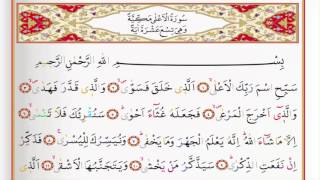 سُورَةُ الْاَعْلٰى مَكِّيَّةٌ
وَهِيَ تِسْعَ عَشْرَةَ اٰيَةً
بِسْمِ اللّٰهِ الرَّحْمٰنِ الرَّح۪يمِ
سَبِّحِ اسْمَ رَبِّكَ الْاَعْلٰىۙ ﴿١﴾ اَلَّذ۪ي خَلَقَ فَسَوّٰىۙ ﴿٢﴾ وَالَّذ۪ي قَدَّرَ فَهَدٰىۙ ﴿٣﴾
وَالَّذ۪ٓي اَخْرَجَ الْمَرْعٰىۙ ﴿٤﴾ فَجَعَلَهُ غُثَٓاءً اَحْوٰىۜ ﴿٥﴾ سَنُقْرِئُكَ فَلَا تَنْسٰىۙ ﴿٦﴾
اِلَّا مَا شَٓاءَ اللّٰهُۜ اِنَّهُ يَعْلَمُ الْجَهْرَ وَمَا يَخْفٰىۜ ﴿٧﴾ وَنُيَسِّرُكَ لِلْيُسْرٰىۚ ﴿٨﴾ فَذَكِّرْ
اِنْ نَفَعَتِ الذِّكْرٰىۜ ﴿٩﴾ سَيَذَّكَّرُ مَنْ يَخْشٰىۙ ﴿١٠﴾ وَيَتَجَنَّبُهَا الْاَشْقٰىۙ ﴿١١﴾ اَلَّذ۪ي